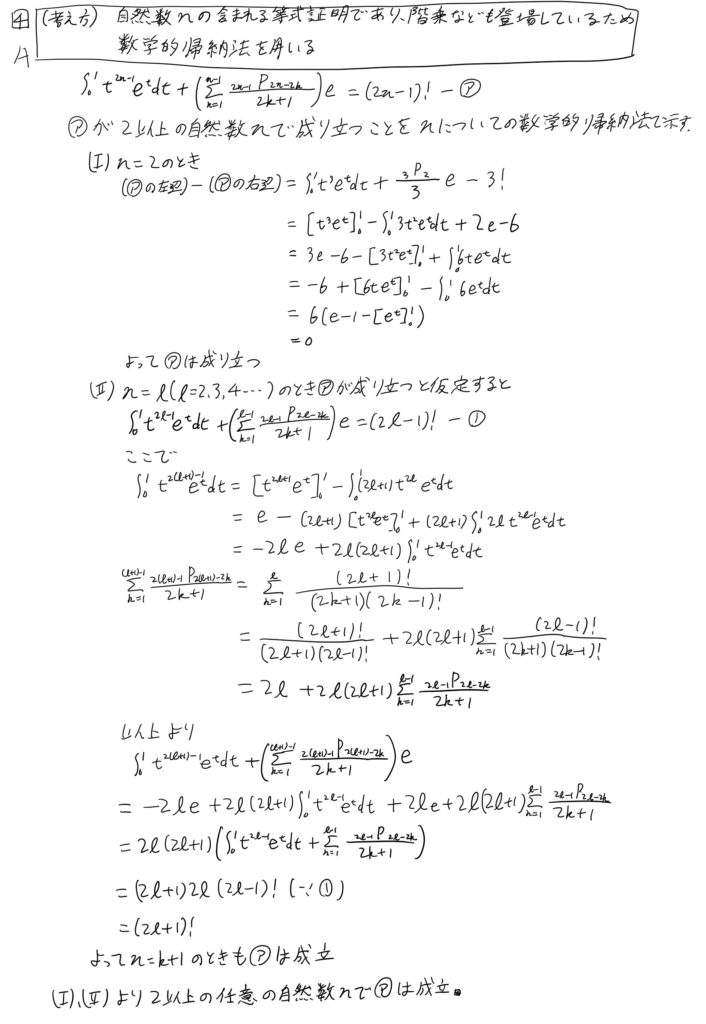 4 (考え方) 自然数nの含まれる等式証明であり、階乗なども登場しているため
A 数学的帰納法を用いる
∫₀¹ t²ⁿ⁻¹eᵗdt + (Σ_{k=1}^{n-1} {}_{2n-1}P_{2n-2k}/(2k+1))e = (2n-1)! − ㋐
㋐が2以上の自然数nで成り立つことをnについての数学的帰納法で示す.
(I) n=2のとき
(㋐の左辺)−(㋐の右辺) = ∫₀¹t³eᵗdt + {}_3P_2/3 e − 3!
= [t³eᵗ]₀¹ − ∫₀¹3t²eᵗdt + 2e−6
= 3e−6−[3t²eᵗ]₀¹ + ∫₀¹6teᵗdt
= −6 + [6teᵗ]₀¹ − ∫₀¹6eᵗdt
= 6(e−1−[eᵗ]₀¹)
= 0
よって㋐は成り立つ
(II) n=l(l=2,3,4…)のとき㋐が成り立つと仮定すると
∫₀¹t^{2l-1}eᵗdt + (Σ_{k=1}^{l-1} {}_{2l-1}P_{2l-2k}/(2k+1))e = (2l−1)! − ①
ここで
∫₀¹ t^{2(l+1)-1}eᵗdt = [t^{2l+1}eᵗ]₀¹ − ∫₀¹(2l+1)t^{2l}eᵗdt
= e − (2l+1)[t^{2l}eᵗ]₀¹ + (2l+1)∫₀¹2l t^{2l-1}eᵗdt
= −2le + 2l(2l+1)∫₀¹t^{2l-1}eᵗdt
Σ_{k=1}^{(l+1)-1} {}_{2(l+1)-1}P_{2(l+1)-2k}/(2k+1) = Σ_{k=1}^{l} (2l+1)!/((2k+1)(2k−1)!)
= (2l+1)!/((2l+1)(2l−1)!) + 2l(2l+1)Σ_{k=1}^{l-1} (2l−1)!/((2k+1)(2k−1)!)
= 2l + 2l(2l+1)Σ_{k=1}^{l-1} {}_{2l-1}P_{2l-2k}/(2k+1)
以上より
∫₀¹ t^{2(l+1)-1}eᵗdt + (Σ_{k=1}^{(l+1)-1} {}_{2(l+1)-1}P_{2(l+1)-2k}/(2k+1))e
= −2le + 2l(2l+1)∫₀¹t^{2l-1}eᵗdt + 2le + 2l(2l+1)Σ_{k=1}^{l-1} {}_{2l-1}P_{2l-2k}/(2k+1)
= 2l(2l+1)(∫₀¹t^{2l-1}eᵗdt + Σ_{k=1}^{l-1} {}_{2l-1}P_{2l-2k}/(2k+1))
= (2l+1)2l(2l−1)! (∵①)
= (2l+1)!
よってn=k+1のときも㋐は成立
(I),(II)より2以上の任意の自然数nで㋐は成立。